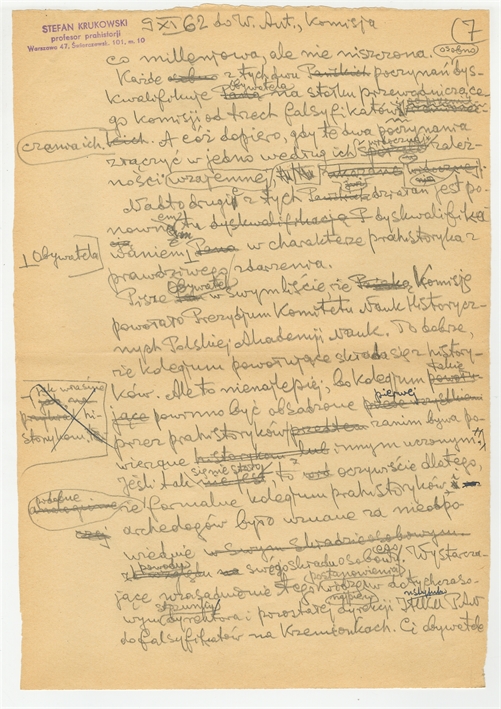 STEFAN KRUKOWSKI
profesor prahistorji
Warszawa 47, Świerczewsk. 101, m. 10
9 XI 62 do W. Ant., Komisja
(7
osobno
co millenjowa, ale nie niszczona.
Każde z tych dwu poczynań dys-
kwalifikuje obywatela na stołku przewodniczące-
go komisji od trzech falsyfikatów
czania ich. A cóż dopiero, gdy te dwa poczynania
złączyć w jedno według ich zależ-
ności wzajemnej,
Nadto drugie z tych działań jest po-
nowną dyskwalifikacją dyskwalifiko
Obywatela
waniem w charakterze prahistoryka z
prawdziwego zdarzenia.
Pisze Obywatel w swym liście że Komisję
powołało Prezydjum Komitetu Nauk Historycz-
nych Polskiej Akademji Nauk. To dobrze,
że kolegjum powołujące składa się z history-
ków. Ale to nienajlepiej, bo kolegjum takie
powinno być obsadzone pierwej
przez prahistoryków zanim bywa po-
wierzone historykom lub innym uczonym.
Jeśli tak się nie stało, to oczywiście dlatego,
że formalne kolegjum prahistoryków i
archeologów było uznane za nieodpo-
wiednie w swym składzie osobowym
z powodu swego składu osobowego. Wystarcza-
jące uzasadnienie tego postanowienia w dotychczaso-
wym stosunku
dyrektora i pozostałej dyrekcji IHKM PAN
do falsyfikatów na Krzemionkach. Ci obywatele